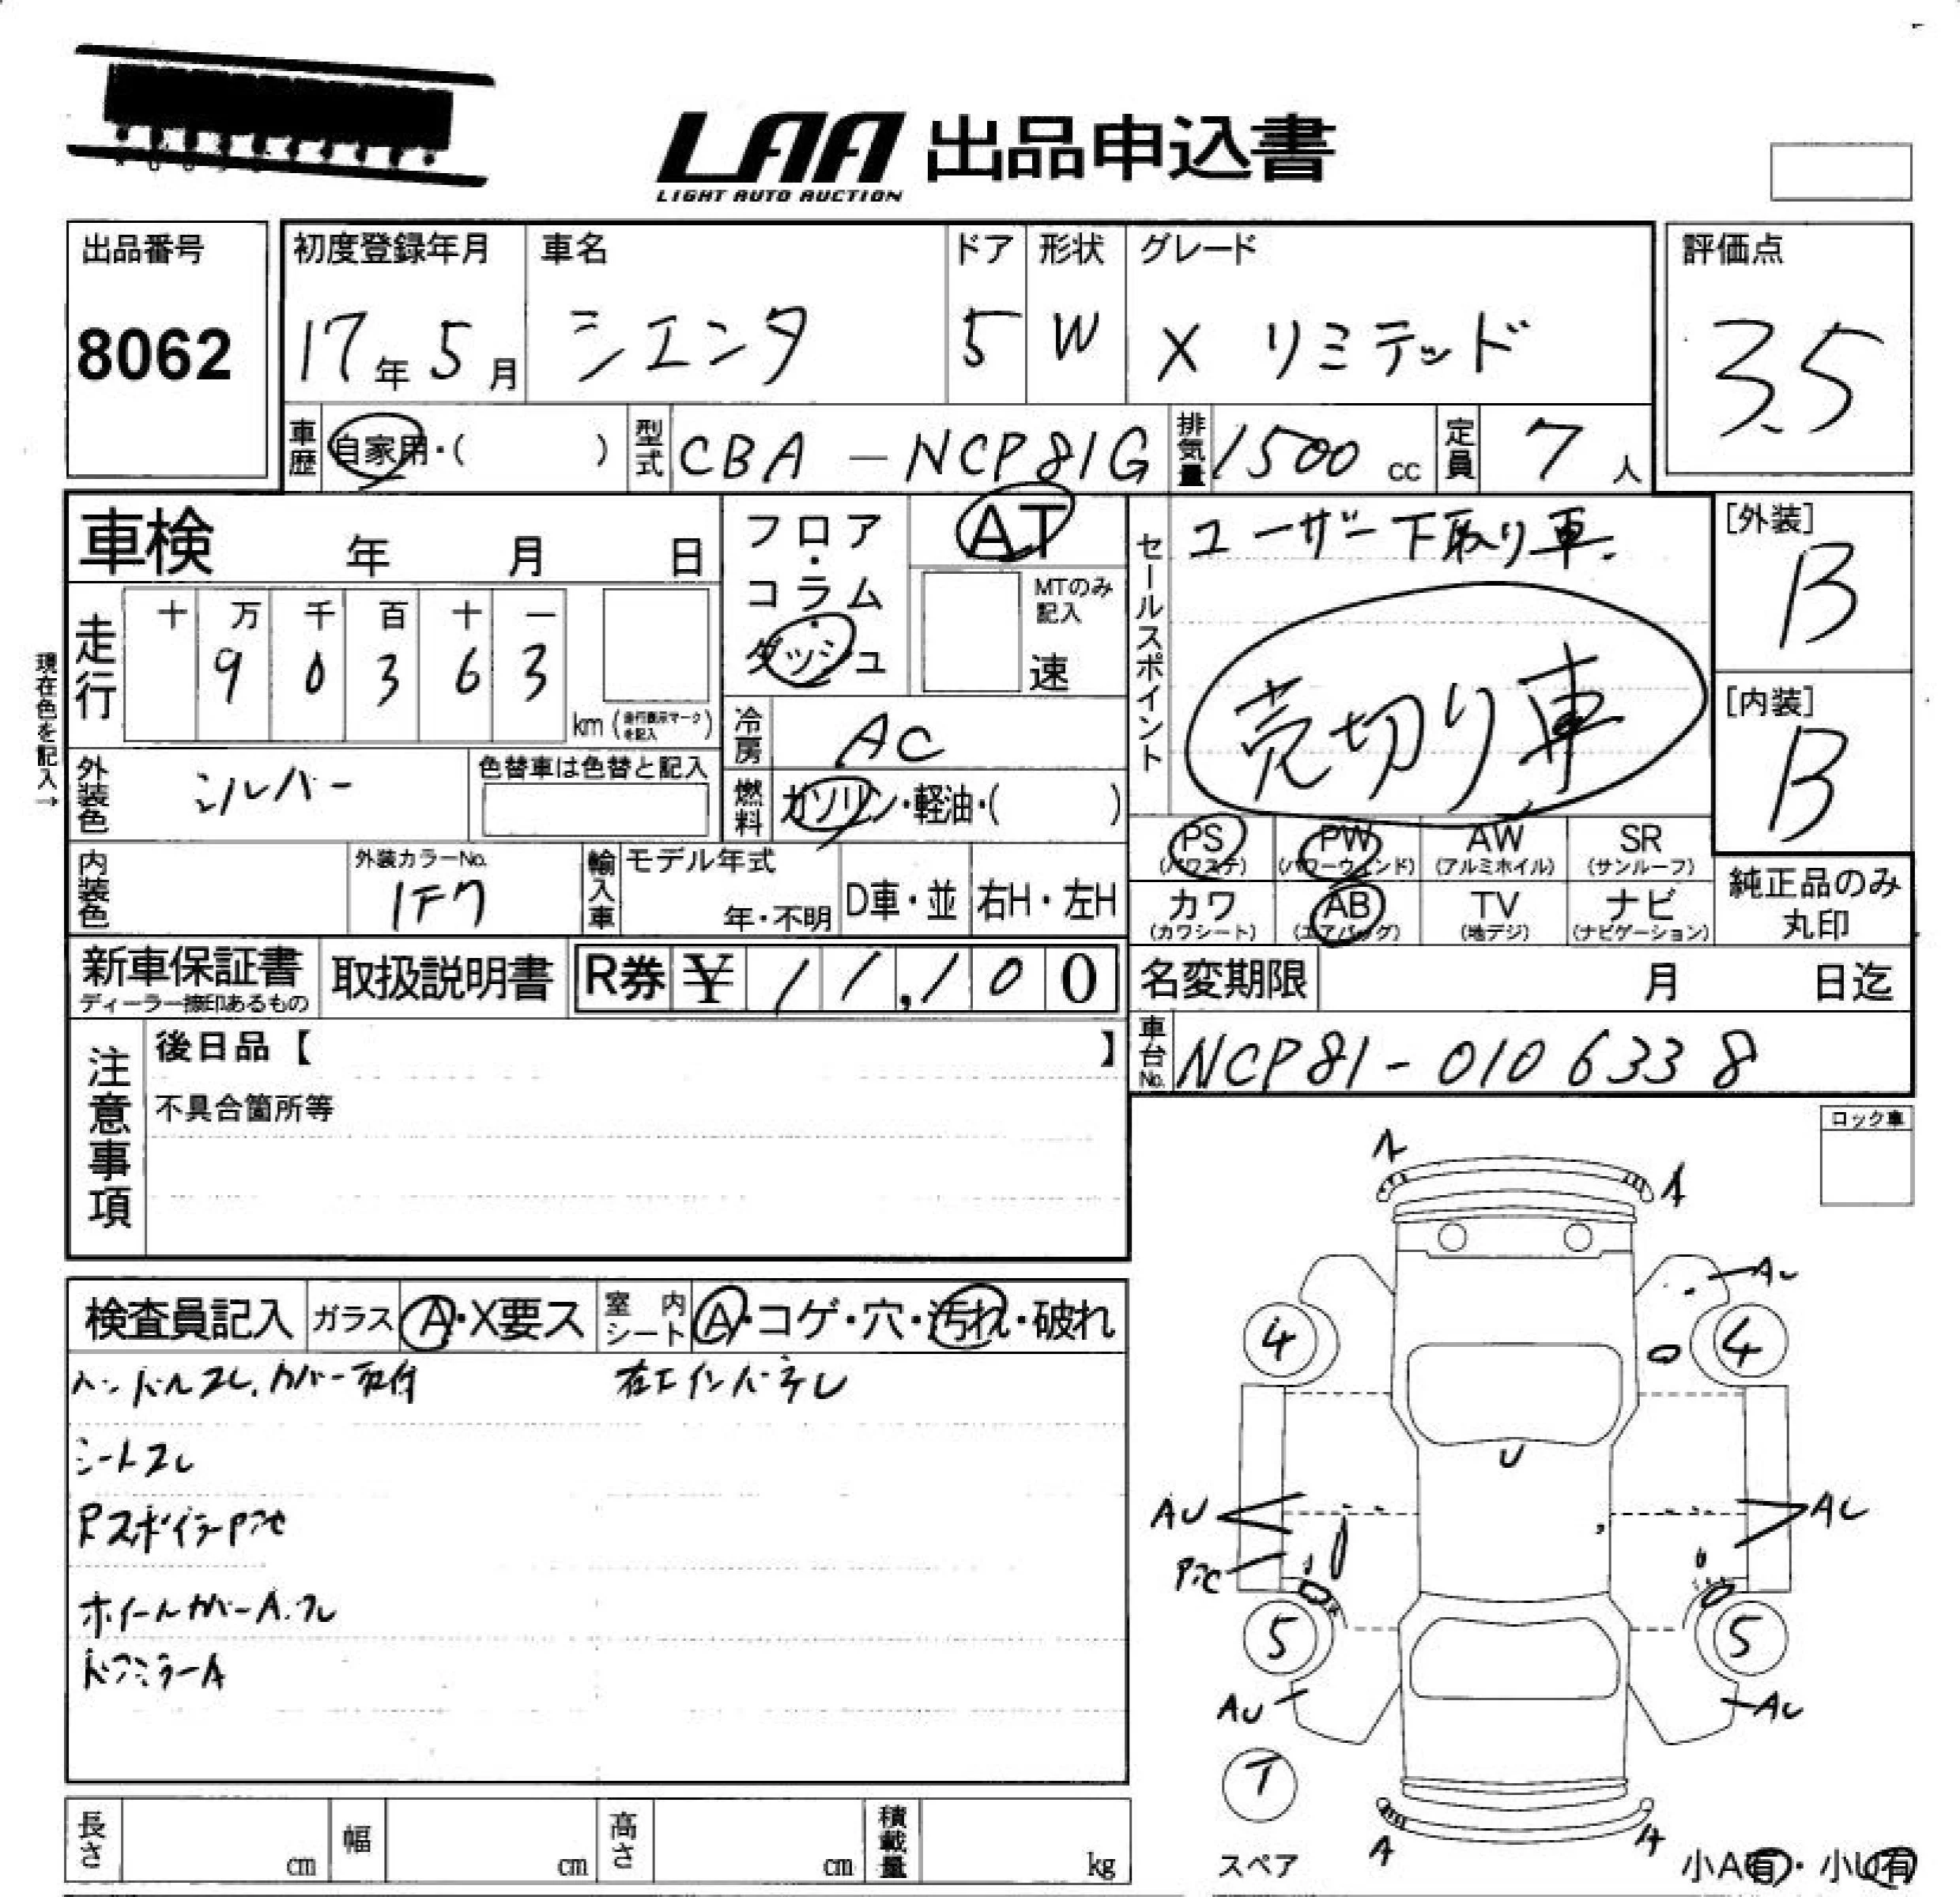 LAA 出品申込書
LIGHT AUTO AUCTION
出品番号
8062
初度登録年月
17年 5月
車名
シエンタ
ドア
5
形状
W
グレード
X リミテッド
評価点
3.5
車歴 自家用・( )
型式 CBA-NCP81G
排気量 1500 cc
定員 7 人
車検 年 月 日
フロア・コラム・ダッシュ
AT
MTのみ記入
速
セールスポイント
ユーザー下取り車.
売切り車
[外装]
B
[内装]
B
現在色を記入→
走行
十 万 千 百 十 一
9 0 3 6 3
km (走行表示マークを記入)
冷房 AC
燃料 ガソリン・軽油・( )
外装色 シルバー
色替車は色替と記入
PS (パワステ)
PW (パワーウィンド)
AW (アルミホイル)
SR (サンルーフ)
カワ (カワシート)
AB (エアバッグ)
TV (地デジ)
ナビ (ナビゲーション)
純正品のみ丸印
内装色
外装カラーNo.
1F7
輸入車
モデル年式
年・不明
D車・並
右H・左H
新車保証書
ディーラー捺印あるもの
取扱説明書
R券 ¥ 11,100
名変期限 月 日迄
車台No. NCP81-0106338
注意事項
後日品【 】
不具合箇所等
ロック車
検査員記入
ガラス A・X要ス
室内シート A・コゲ・穴・汚れ・破れ
ハンドルスレ.カバー取付
シートスレ
ホイールカバーA.スレ
ドアミラーA
A
AU
4
4
U
AU
AU
5
5
AU
AU
T
スペア
A
A
小A有・小U有
長さ cm
幅 cm
高さ cm
積載量 kg